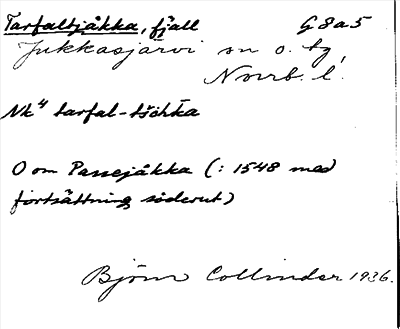 Tarfaltjåkka, fjäll G8a5
Jukkasjärvi sn o. tg,
Norrb. l.
Nk⁴ tarfal-tšohka
O om Passejåkka (: 1548 med
fortsättning söderut)
Björn Collinder 1936.